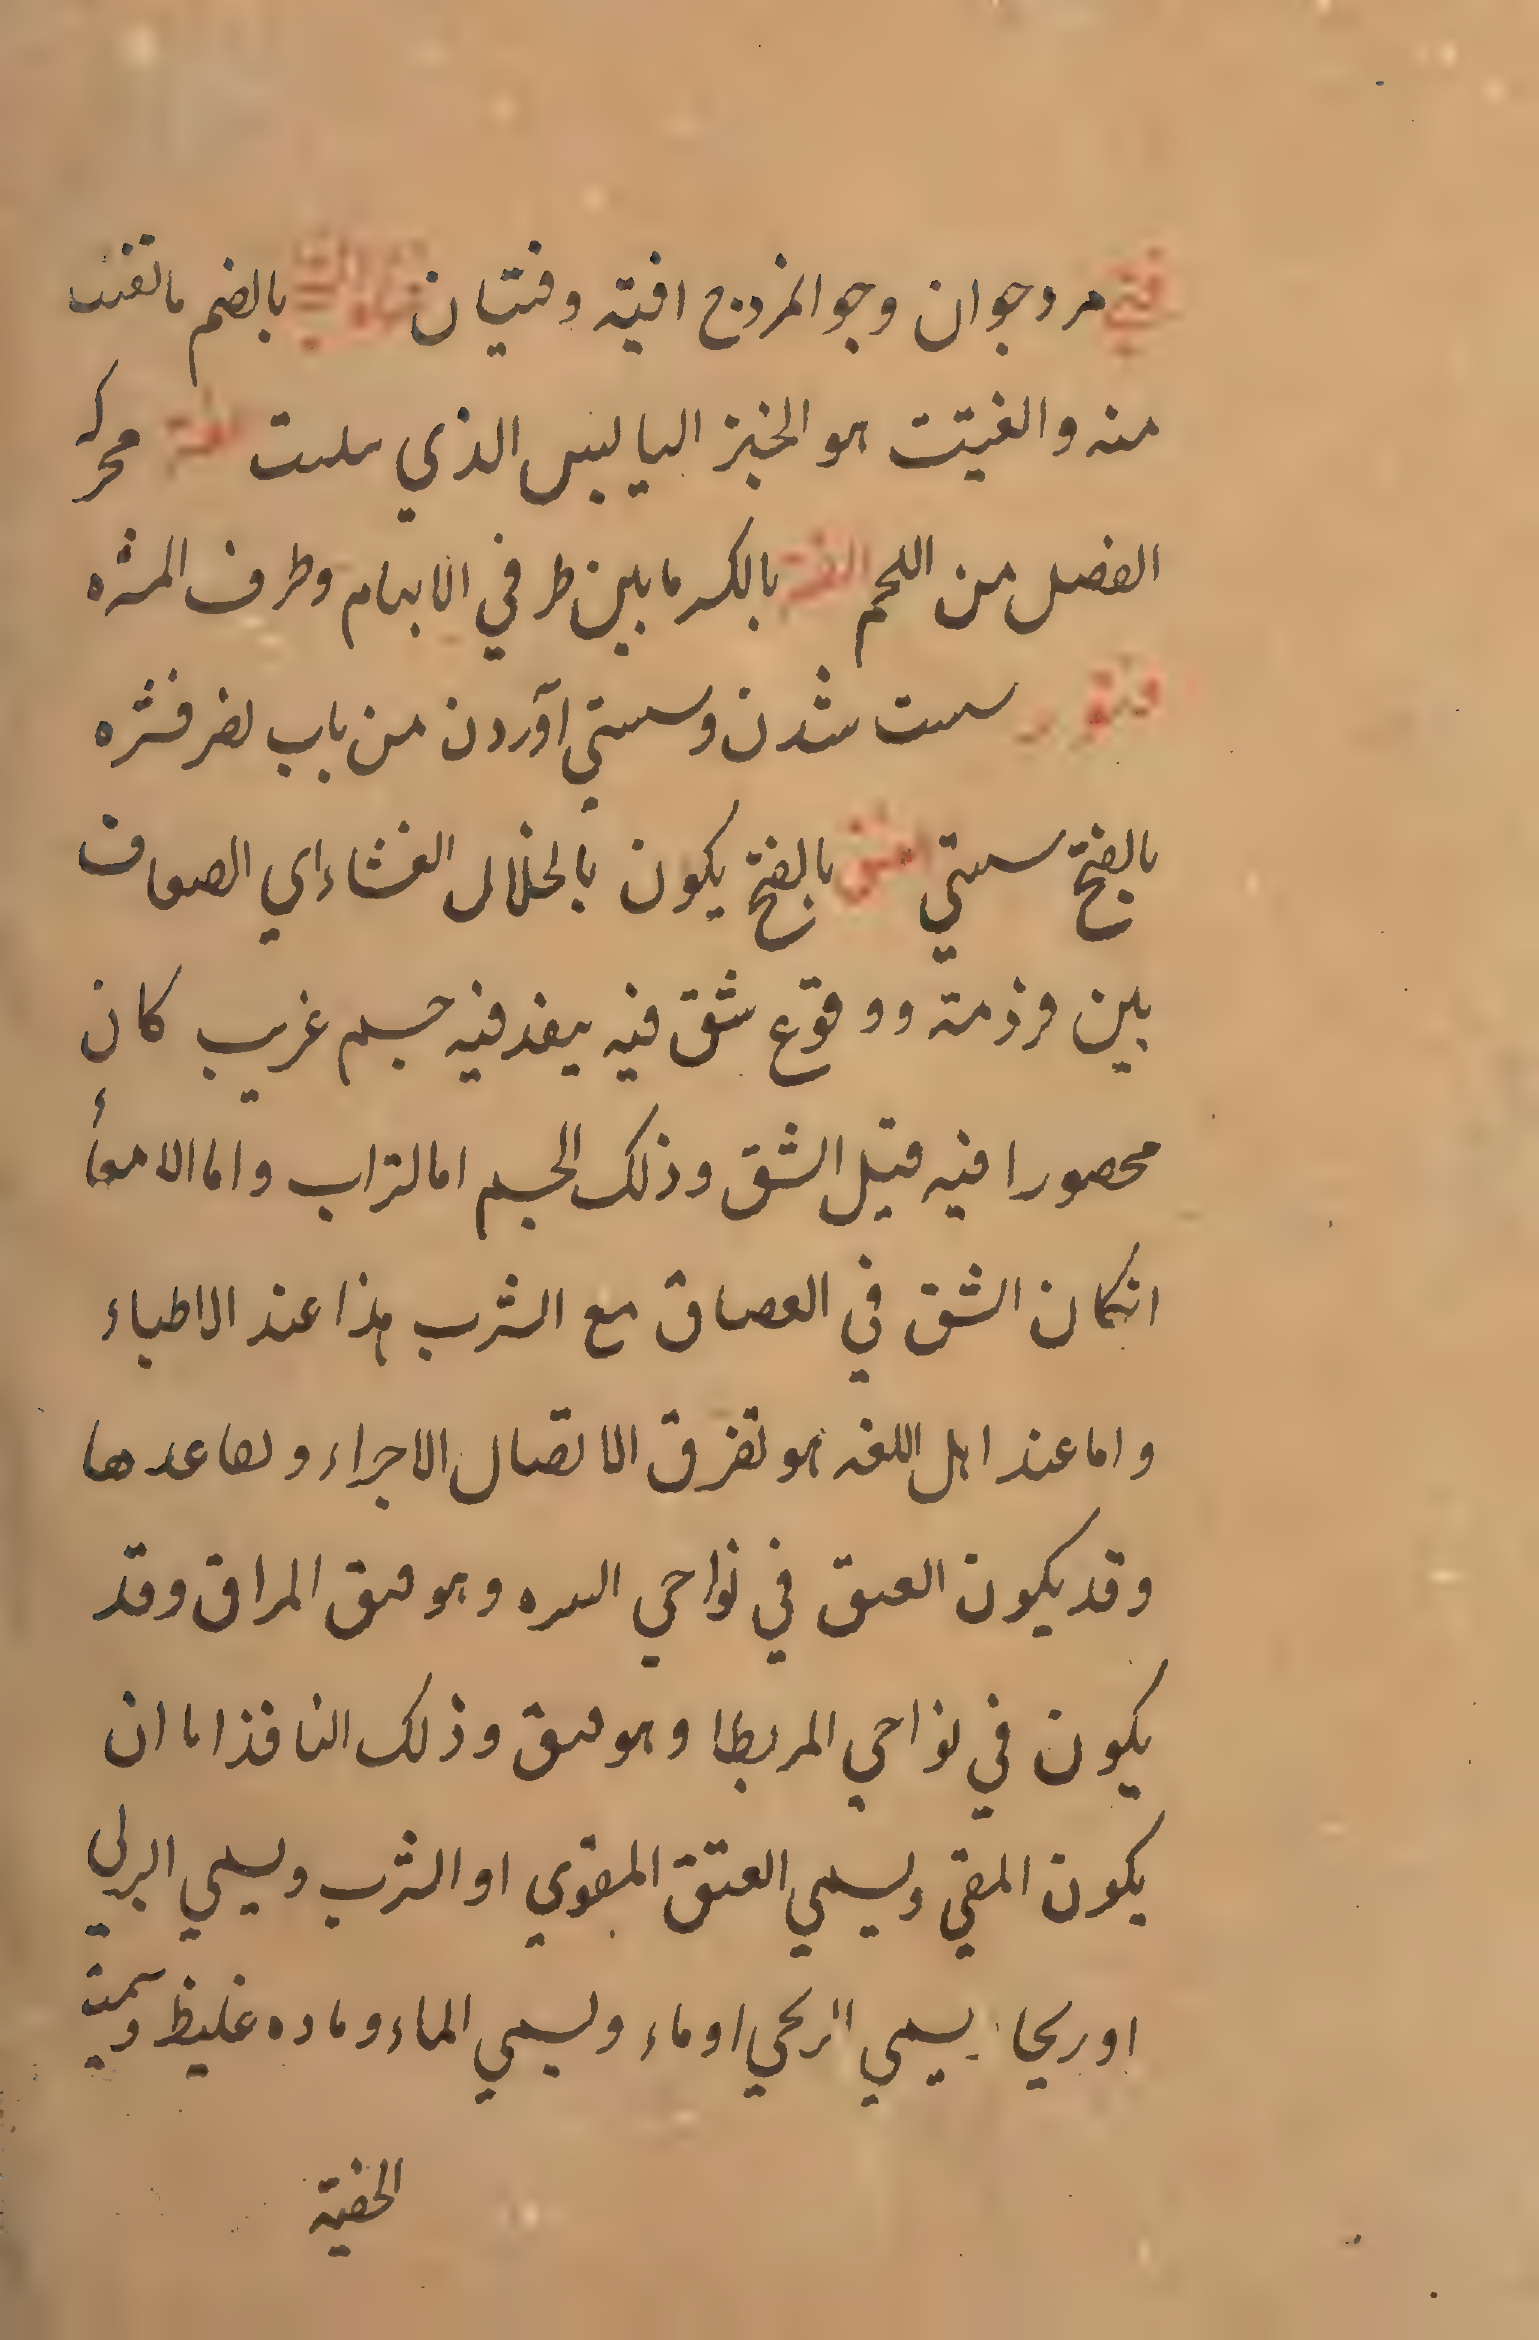 فتي مرد جوان وجوالمزدج افيته وفتيان بالضم ماتفتت
منه والفتيت هو الخبز اليابيس الذي محركه
الفصل من اللحم الفتر بالكسر مابين طرفي الابهام وطرف المشره
فتور سست شدن وسستي آوردن من باب نصر فتره
بالفتح سستي فتق بالفتح يكون بانحلال الغشاء اي الصفاف
بين ووقوع شق فيه ينفد فيه جسم غريب كان
محصورا فيه قبل الشق وذلك الجسم اما لترب واما الامعاء
انكان الشق في الصفاق مع الثرب هذا عند الاطباء
واما عند اهل اللغه هو تفرق الاتصال الاجزاء وتصاعدها
وقد يكون الفتق في نواحي السره وهو فتق المراق وقد
يكون في نواحي المربطا وهو فتق وذلك النافذ اما ان
يكون المقي ويسمي الفتق المقوي او الثرب ويسمي الربلي
او ريحا يسمي الريحي او ماء ويسمي الماء وماده غليظ